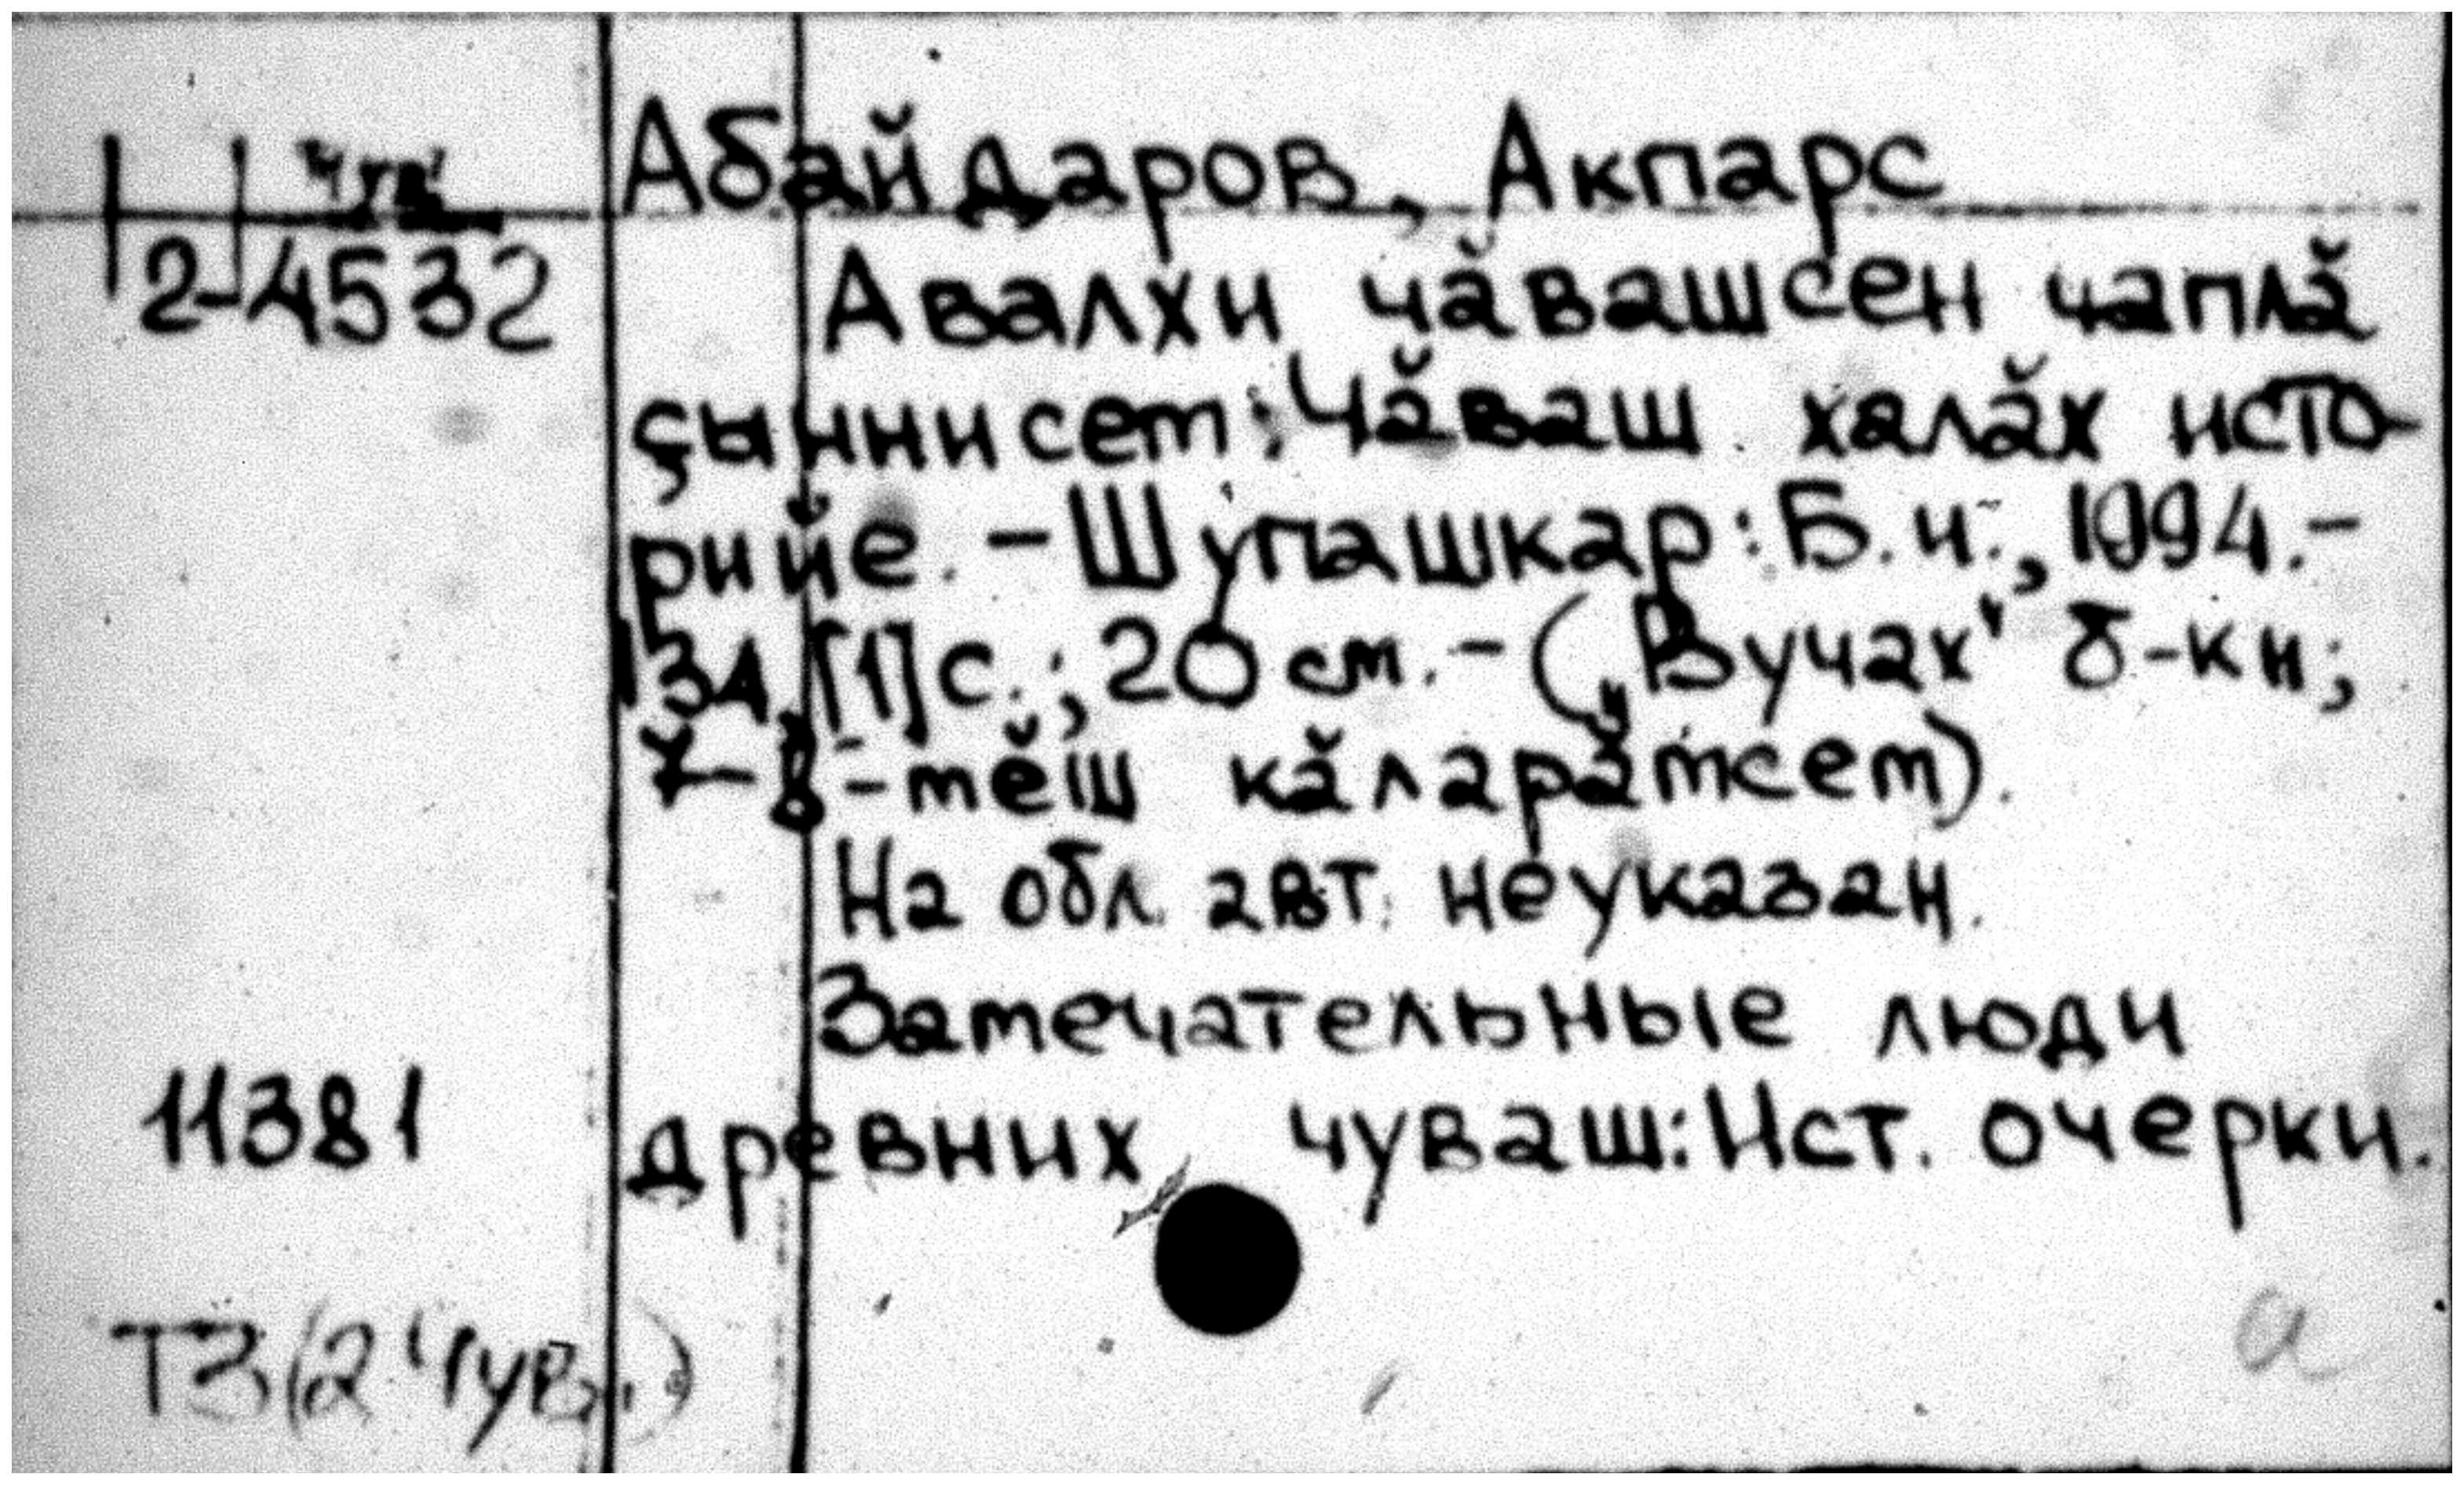 Чув
2-4532
Абайдаров, Акпарс
Авалхи чӑвашсен чаплӑ
ҫыннисет: Чӑваш халӑх исто-
рийӗ. - Шупашкар: Б.и., 1994.-
134, [1] с.; 20 см. - („Вучах" б-ки;
7-8-мӗш кӑларӑмсем).
На обл. авт. не указан.
Замечательные люди
древних чуваш: Ист. очерки.
11381
Т3(2Чув.)
а